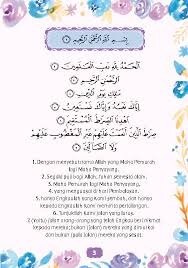 بِسْمِ اللَّهِ الرَّحْمَٰنِ الرَّحِيمِ ١
الْحَمْدُ لِلَّهِ رَبِّ الْعَالَمِينَ ٢
الرَّحْمَٰنِ الرَّحِيمِ ٣
مَالِكِ يَوْمِ الدِّينِ ٤
إِيَّاكَ نَعْبُدُ وَإِيَّاكَ نَسْتَعِينُ ٥
اهْدِنَا الصِّرَاطَ الْمُسْتَقِيمَ ٦
صِرَاطَ الَّذِينَ أَنْعَمْتَ عَلَيْهِمْ غَيْرِ الْمَغْضُوبِ عَلَيْهِمْ
وَلَا الضَّالِّينَ ٧
1. Dengan menyebut nama Allah yang Maha Pemurah
lagi Maha Penyayang.
2. Segala puji bagi Allah, Tuhan semesta alam.
3. Maha Pemurah lagi Maha Penyayang.
4. Yang menguasai di Hari Pembalasan.
5. hanya Engkaulah yang Kami sembah, dan hanya
kepada Engkaulah Kami meminta pertolongan.
6. Tunjukilah Kami jalan yang lurus,
7. (Yaitu) Jalan orang-orang yang telah Engkau beri nikmat
kepada mereka; bukan (jalan) mereka yang dimurkai
dan bukan (pula jalan) mereka yang sesat.
3